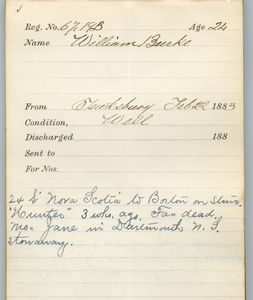 Reg. No. 67.19B Age 24
Name William Burke
From Tewksbury Feb 22 1883
Condition, Well
Discharged 188
Sent to
For Nos.
24 b' Nova Scotia to Boston on stmr.
"Hunter" 3 wks. ago. Fa= dead.
Mo= Jane in Dartmouth N. S.
stowaway.